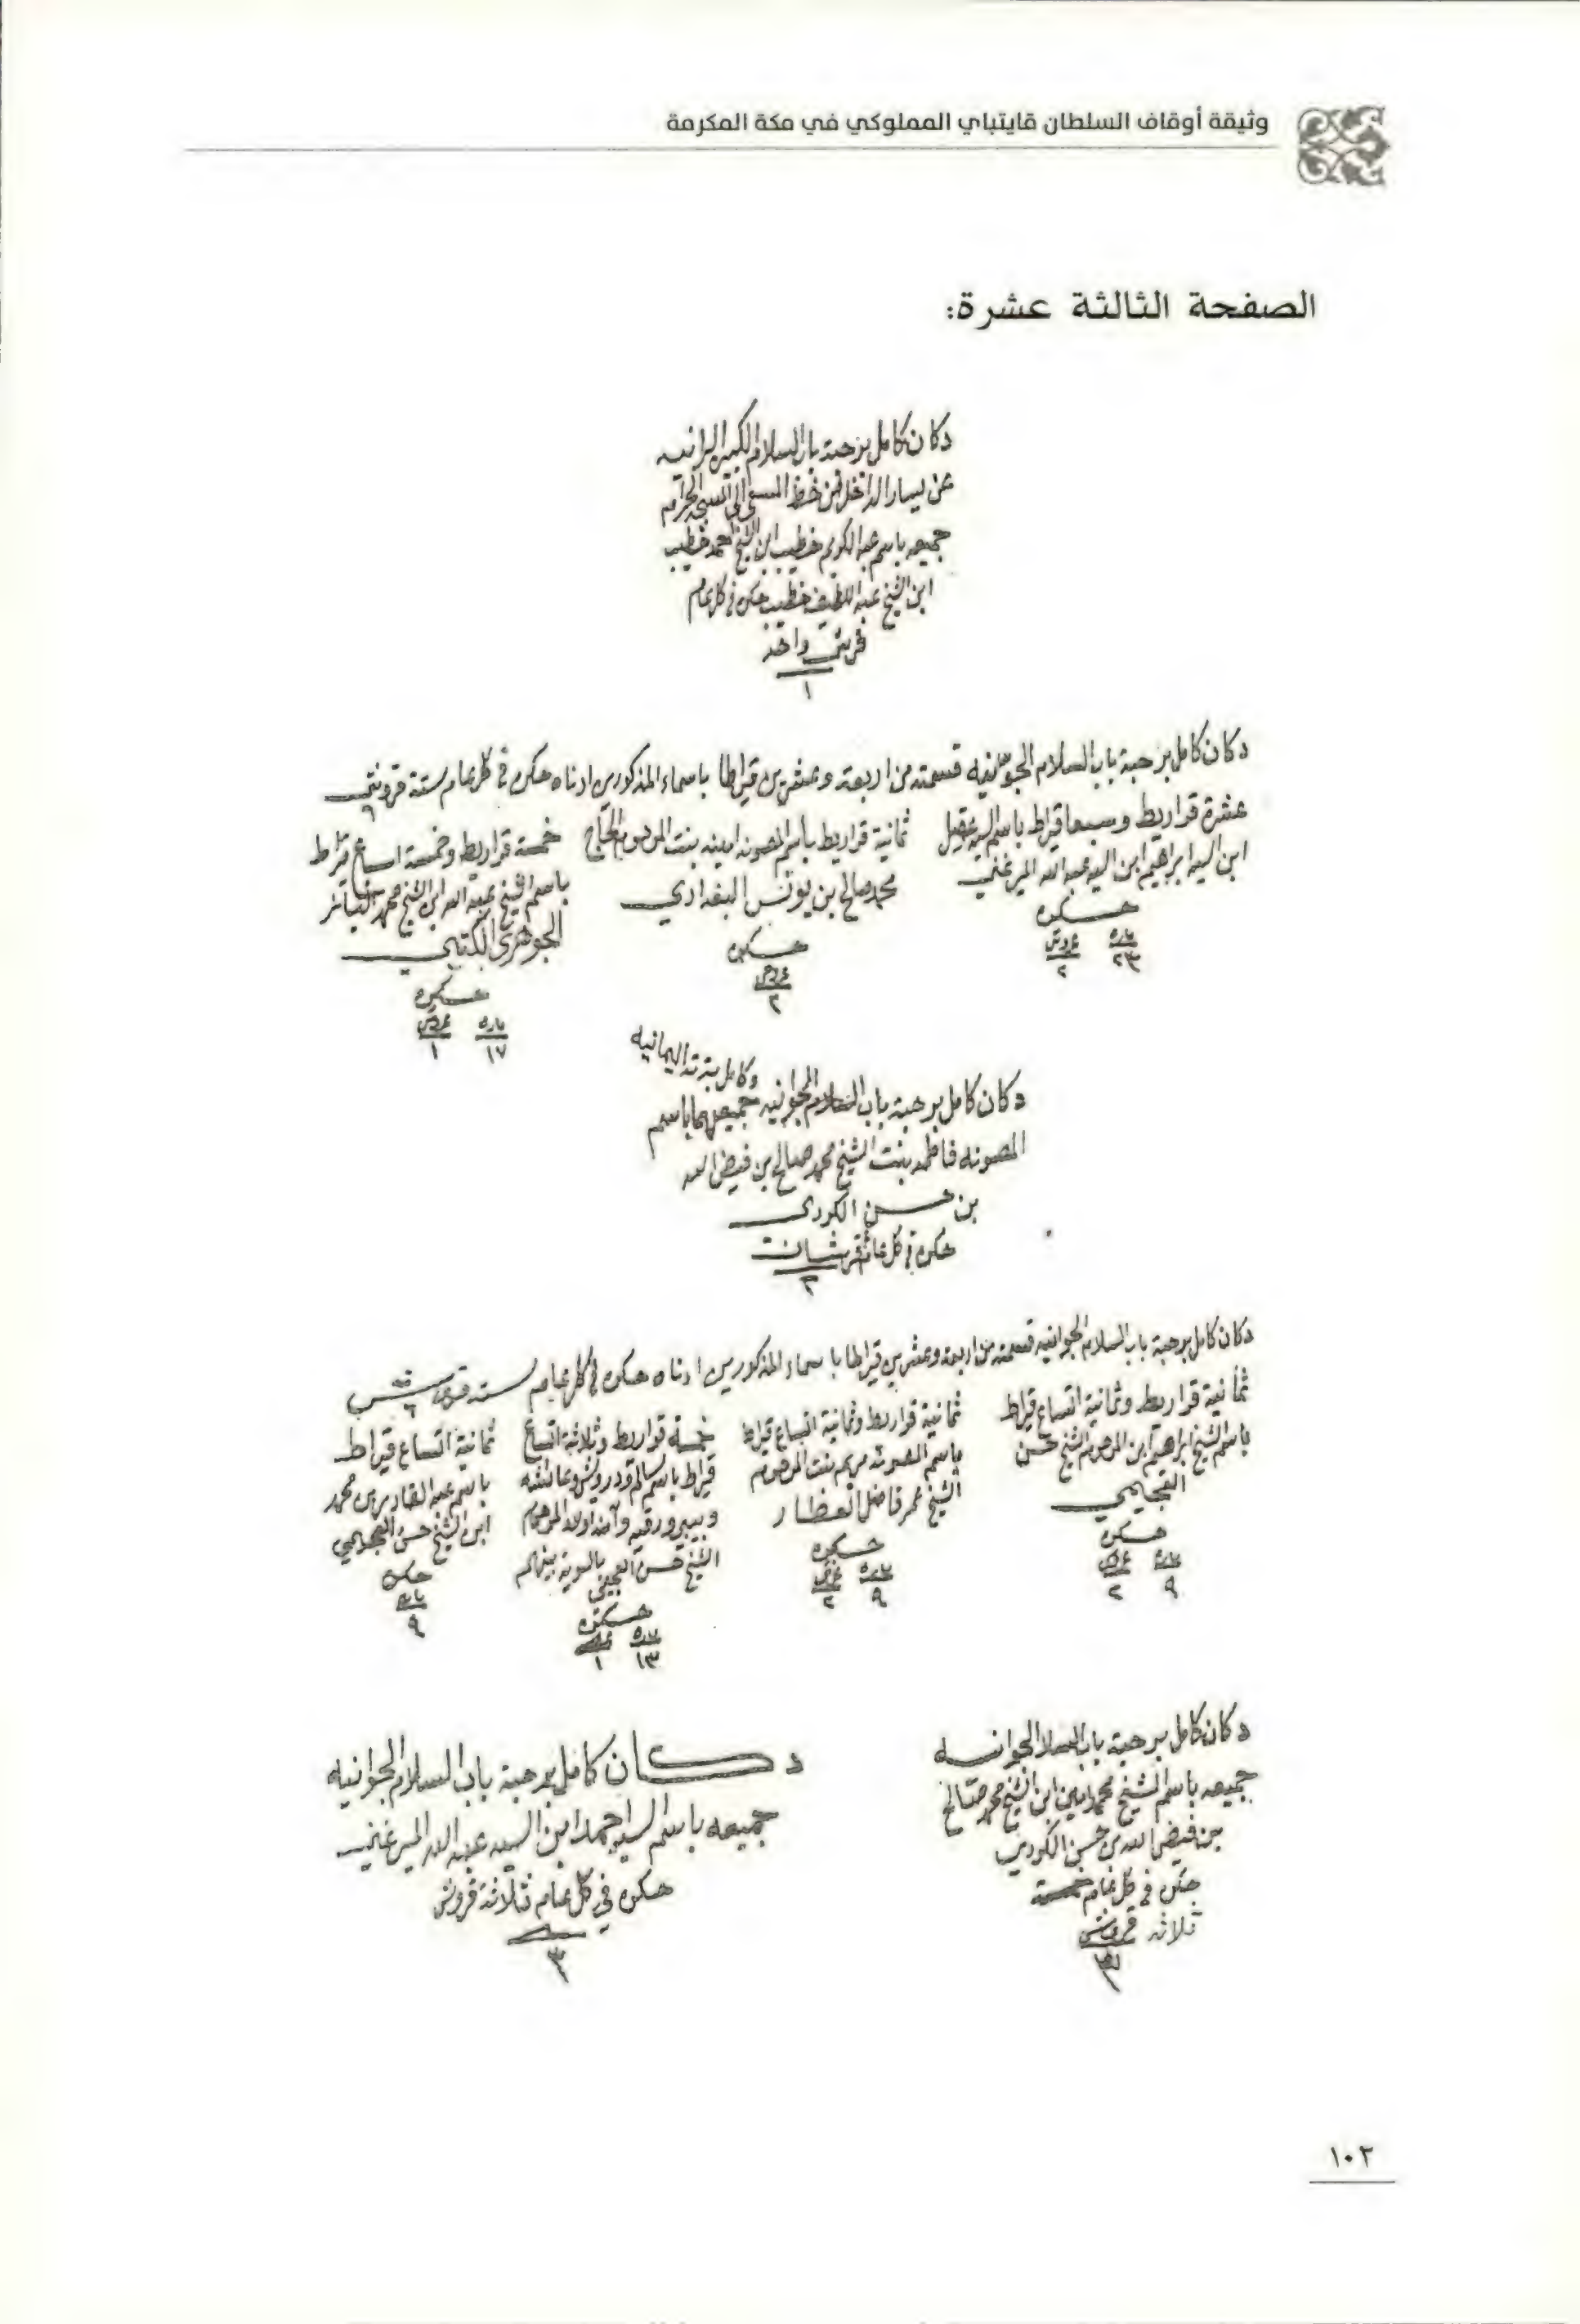 وثيقة أوقاف السلطان قايتباي المملوكي في مكة المكرمة
الصفحة الثالثة عشرة:
دكان كامل برحبة باب السلام الكبير البرانيه
عن يسار الداخل من خط المسعى الى المسجد الحرام
جميعه باسم عبد الكريم خطيب ابن الشيخ احمد خطيب
ابن الشيخ عبد اللطيف خطيب حكره في كل عام
قرش واحد
١
دكان كامل برحبة باب السلام الجوانيه قسمته من اربعة وعشرين قيراطا باسماء المذكورين ادناه حكره في كل عام ستة قروش
٦
عشرة قراريط وسبعا قيراط باسم السيد عقيل
ابن السيد ابراهيم ابن السيد عبد الله الميرغني
حكره
باره قروش
٢٣ ٢
ثمانية قراريط باسم المصونه امينه بنت المرحوم الحاج
محمد صالح بن يونس البغدادي
حكره
قروش
٢
خمسة قراريط وخمسة اسباع قيراط
باسم الشيخ عبد الله ابن الشيخ محمد
الجوهري الكتبي
حكره
باره قروش
١٧ ١
وكامل اليمانيه
دكان كامل برحبة باب السلام الجوانيه جميعهما باسم
المصونه فاطمه بنت الشيخ محمد صالح بن فيض الله
بن حسن الكردي
حكره في كل عام قرشان
٢
دكان كامل برحبة باب السلام الجوانيه قسمته من اربعة وعشرين قيراطا باسماء المذكورين ادناه حكره في كل عام ستة قروش
٦
ثمانية قراريط وثمانية اتساع قيراط
باسم الشيخ ابراهيم ابن المرحوم الشيخ حسن
العجيمي
حكره
باره قروش
٩ ٢
ثمانية قراريط وثمانية اتساع قيراط
باسم المصونه مريم بنت المرحوم
الشيخ عمر فاضل العطار
حكره
باره قروش
٩ ٢
خمسة قراريط وثلاثة اتساع
قيراط باسم سالم ودرويش وعائشه
وبيبه ورقيه وآمنه اولاد المرحوم
الشيخ حسن العجيمي بالسوية بينهم
حكره
باره قرش
١٣ ١
ثمانية اتساع قيراط
باسم عبد القادر بن محمد
ابن الشيخ حسن العجيمي
حكره
باره
٩
دكان كامل برحبة باب السلام الجوانيه
جميعه باسم الشيخ محمد امين ابن الشيخ محمد صالح
بن فيض الله بن حسن الكردي
حكره في كل عام
ثلاثه قروش
٣
دكان كامل برحبة باب السلام الجوانيه
جميعه باسم السيد احمد ابن السيد عبد الله الميرغني
حكره في كل عام ثلاثة قروش
٣
١٠٢